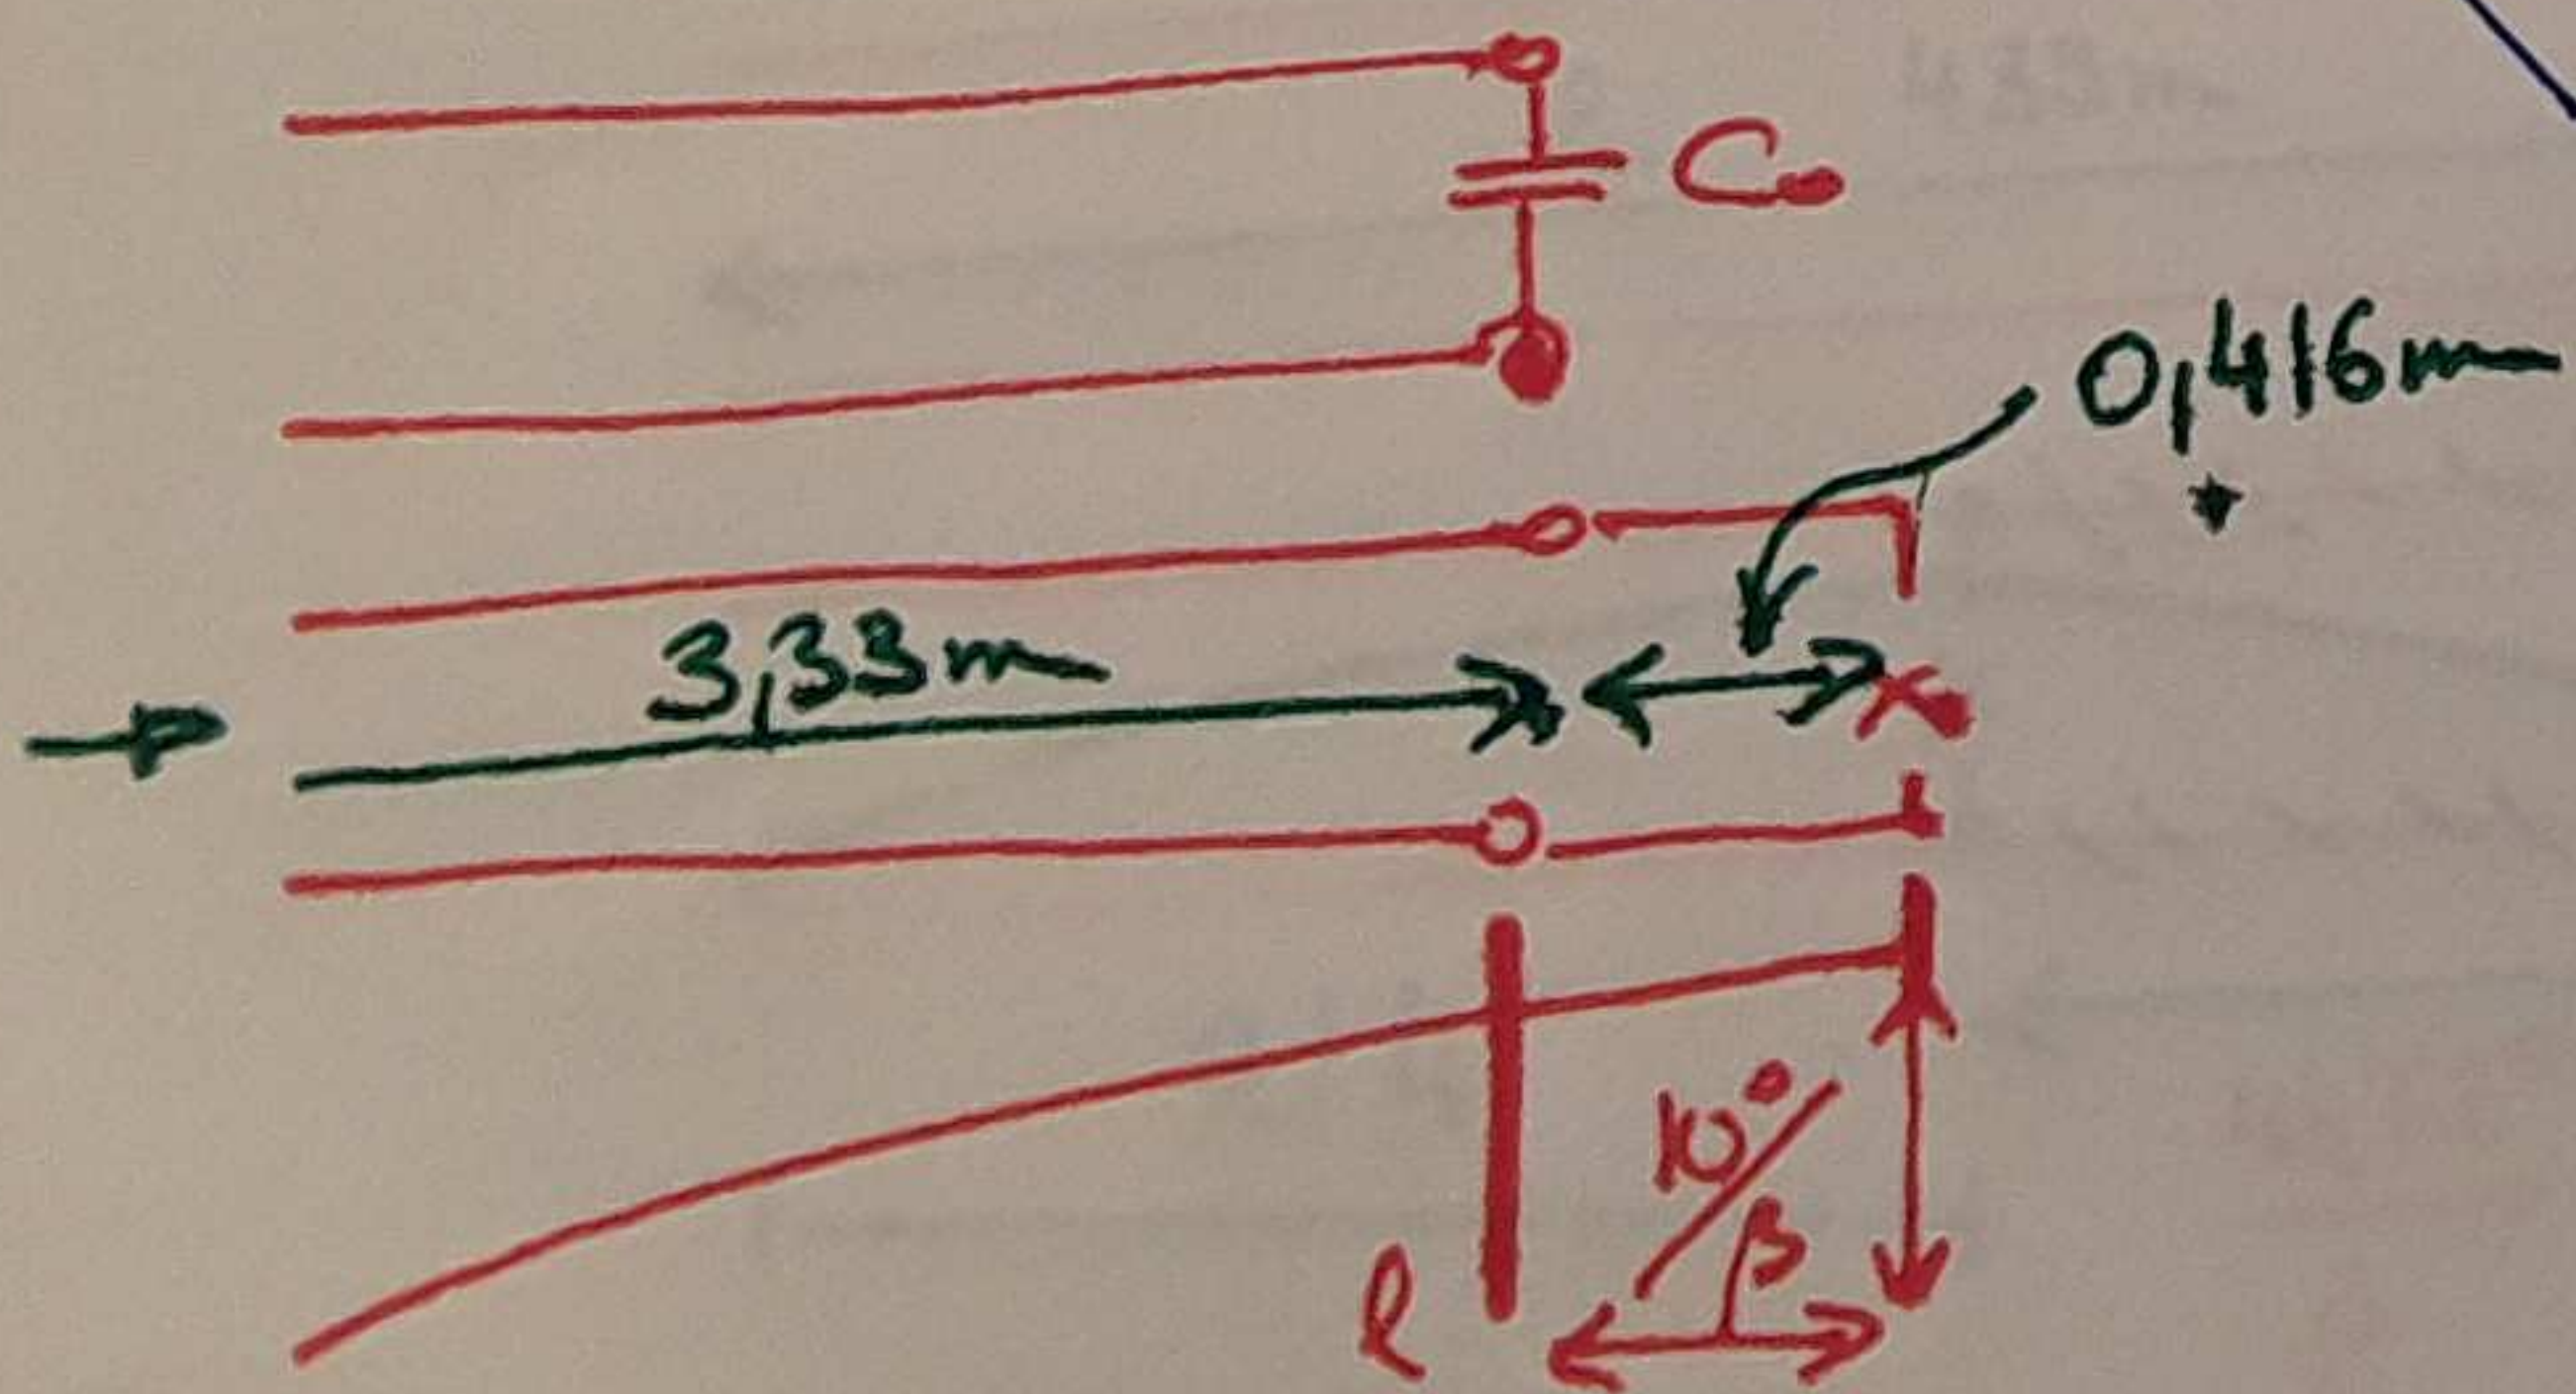 C₀
0,416m
3,33m
10°/β
l